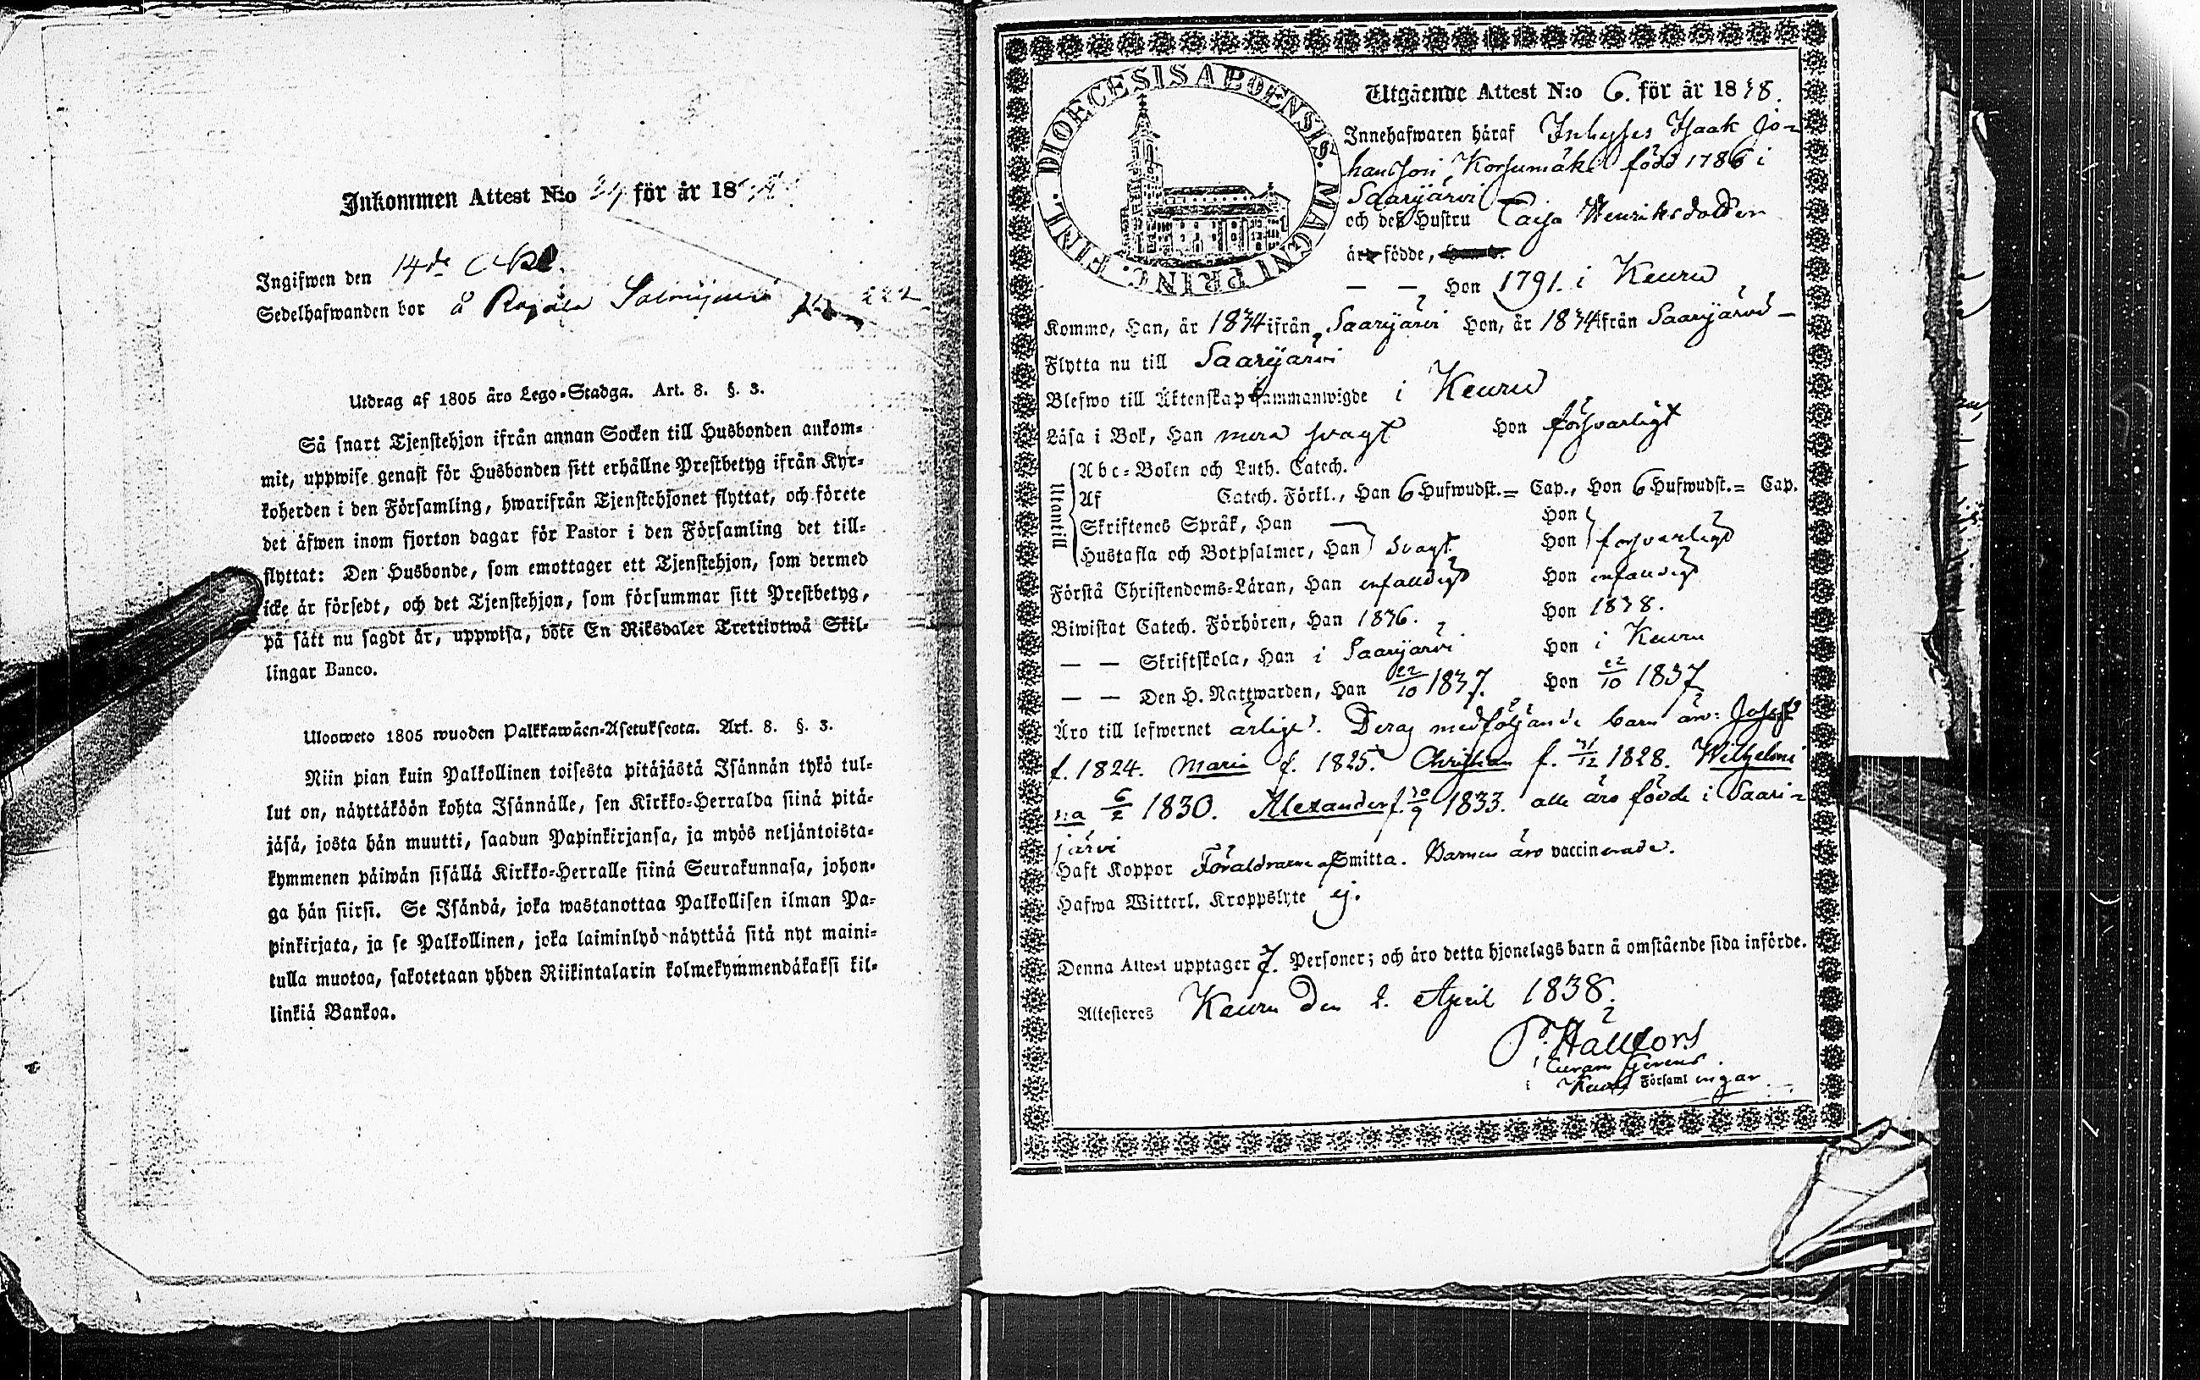 Inkommen Attest N:o 24 för år 18
Ingifwen den 14de
Sedelhafwanden bor å
Utdrag af 1805 års Lego-Stadga. Art. 8. §. 3.
Så snart Tjenstehjon ifrån annan Socken till Husbonden ankom-
mit, uppwise genast för Husbonden sitt erhållne Prestbetyg ifrån Kyr-
koherden i den Församling, hwarifrån Tjenstehjonet flyttat, och förete
det äfwen inom fjorton dagar för Pastor i den Församling det till-
flyttat: Den Husbonde, som emottager ett Tjenstehjon, som dermed
icke är försedt, och det Tjenstehjon, som försummar sitt Prestbetyg,
på sått nu sagdt är, uppwisa, böte En Riksdaler Trettiotwå Skil-
lingar Banco.
Ulosweto 1805 wuoden Palkkawäen-Asetuksesta. Art. 8. §. 3.
Niin pian kuin Palkollinen toisesta pitäjästä Isännän tykö tul-
lut on, näyttäköön kohta Isännälle, sen Kirkko-Herralda siinä pitä-
jäsä, josta hän muutti, saadun Papinkirjansa, ja myös neljäntoista-
kymmenen päiwän sisällä Kirkko-Herralle siinä Seurakunnasa, johon-
ga hän siirsi. Se Isändä, joka wastanottaa Palkollisen ilman Pa-
pinkirjata, ja se Palkollinen, joka laiminlyö näyttää sitä nyt maini-
tulla muotoa, sakotetaan yhden Riikintalarin kolmekymmendäkaksi kil-
linkiä Bankoa.
DIOECESIS ABOENSIS. MAGNI PRINC. FINL.
Utgående Attest N:o 6. för år 1838.
Innehafwaren häraf Inhyses Isaak Jo-
hansson Korsumäki född 1786 i
Saarijärvi
och dess Hustru Caisa Henriksdotter
är födde,
— — Hon 1791. i Keuru
Kommo, Han, år 1834 ifrån Saarijärvi Hon, år 1834 ifrån Saarijärvi —
Flytta nu till Saarijärvi
Blefwo till Äktenskap sammanwigde i Keuru
Läsa i Bok, Han mera svagt Hon försvarligt
Utantill
Abc-Boken och Luth. Catech.
Af Catech. Förkl., Han 6 Hufwudst. = Cap., Hon 6 Hufwudst. = Cap.
Skriftenes Språk, Han Hon
Hustafla och Botpsalmer, Han svagt Hon försvarligt
Förstå Christendoms-Läran, Han enfaldigt Hon enfaldigt
Biwistat Catech. Förhören, Han 1836. Hon 1838.
— — Skriftskola, Han i Saarijärvi Hon i Keuru
— — Den H. Nattwarden, Han 22/10 1837. Hon 22/10 1837
Äro till lefwernet ärlige. Deras medföljande barn äro: Josef
f. 1824. Maria f. 1825. Christian f. 31/12 1828. Wilhelmi
n:a 6/2 1830. Alexander f. 30/9 1833. alle äro födde i Saari-
järvi
Haft Koppor Föräldrarne af Smitta. Barnen äro vaccinerade.
Hafwa Witterl. Kroppslyte ej.
Denna Attest upptager 7. Personer; och äro detta hjonelags barn å omstående sida införde.
Attesteres Keuru den 2. April 1838.
P. Hällfors
Curam Gerens
i Keuru Församlingar